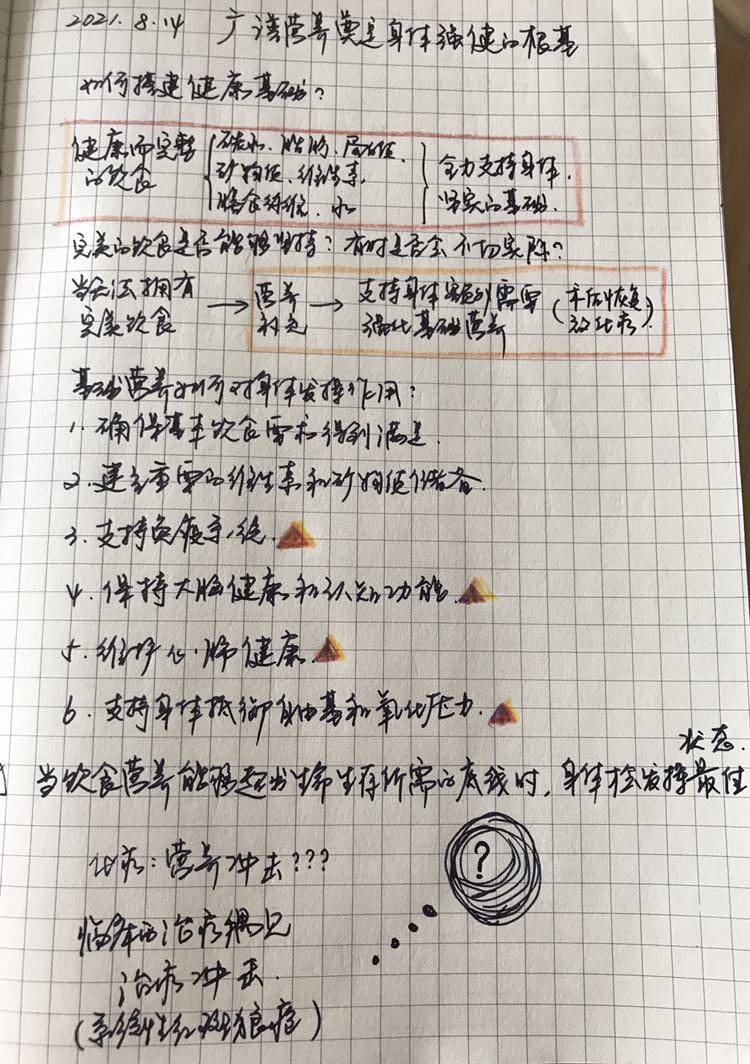 2021.8.14 广谱营养奠定身体强健的根基
如何搭建健康基础?
健康而完整的饮食
碳水、脂肪、蛋白值、
矿物值、维生素、
膳食纤维、水
全力支持身体、
坚实的基础.
完美的饮食是否能够坚持? 有时是否会不切实际?
当无法拥有完美饮食
→ 营养补充 →
支持身体实际需要
强化基础营养
(术后恢复
放化疗)
基础营养如何对身体发挥作用:
1. 确保基本饮食需求得到满足.
2. 建立重要的维生素和矿物值储备.
3. 支持免疫系统.
4. 保持大脑健康和认知功能.
5. 维护心.肺健康.
6. 支持身体抵御自由基和氧化压力.
当饮食营养能够超出生命生存所需的底线时, 身体将发挥最佳状态.
化疗: 营养冲击???
?
临床的治疗偶见
治疗冲击.
(系统性红斑狼疮)